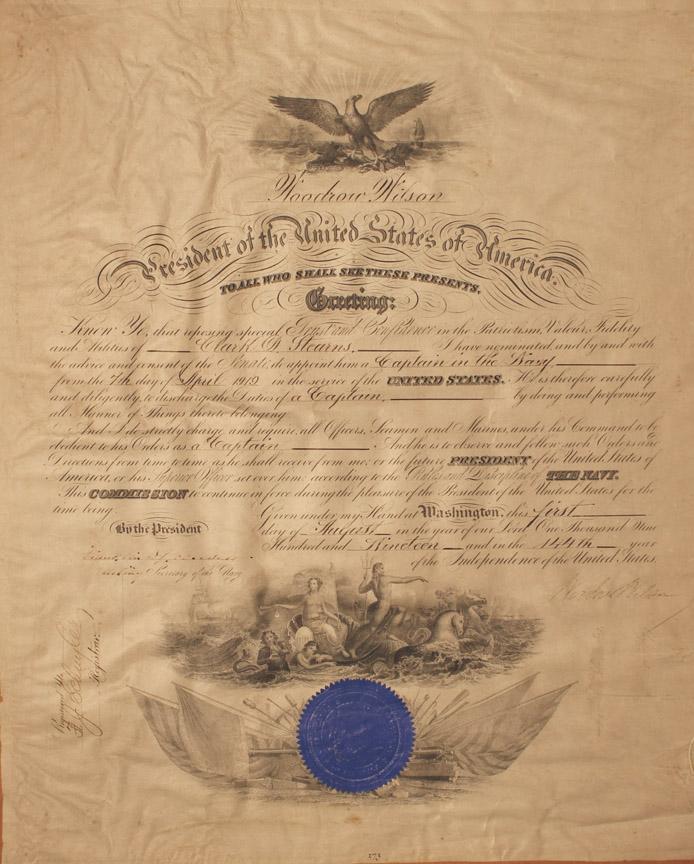 Woodrow Wilson
President of the United States of America.
TO ALL WHO SHALL SEE THESE PRESENTS,
Greeting:
Know Ye, that reposing special Trust and Confidence in the Patriotism, Valour, Fidelity
and Abilities of Clark D. Stearns, I have nominated and by and with
the advice and consent of the Senate, do appoint him a Captain in the Navy
from the 7th day of April 1919 in the service of the UNITED STATES. He is therefore carefully
and diligently to discharge the Duties of a Captain, by doing and performing
all Manner of Things thereto belonging.
And I do strictly charge and require all Officers, Seamen and Marines, under his Command to be
obedient to his Orders as a Captain And he is to observe and follow such Orders and
Directions from time to time as he shall receive from me, or the future PRESIDENT of the United States of
America, or his Superior Officer set over him, according to the Rules and Discipline of THE NAVY.
This COMMISSION to continue in force during the pleasure of the President of the United States for the
time being.
Given under my Hand at Washington, this first
By the President
day of August in the year of our Lord One Thousand Nine
Hundred and Nineteen and in the 144th year
of the Independence of the United States.
Acting Secretary of the Navy
Woodrow Wilson
Registrar.
171